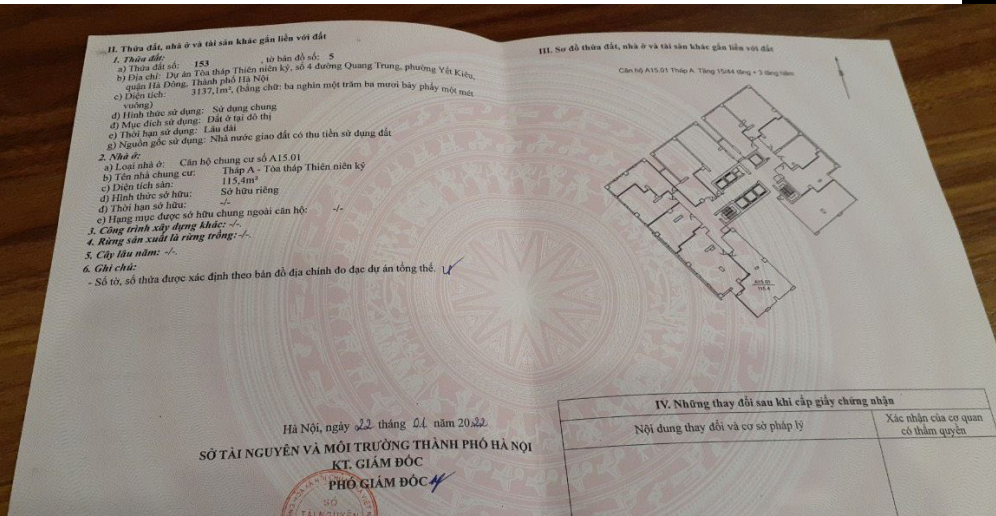 II. Thửa đất, nhà ở và tài sản khác gắn liền với đất
1. Thửa đất:
a) Thửa đất số: 153 , tờ bản đồ số: 5
b) Địa chỉ: Dự án Tòa tháp Thiên niên kỷ, số 4 đường Quang Trung, phường Yết Kiêu,
quận Hà Đông, Thành phố Hà Nội
c) Diện tích: 3137,1m², (bằng chữ: ba nghìn một trăm ba mươi bảy phẩy một mét
vuông)
d) Hình thức sử dụng: Sử dụng chung
đ) Mục đích sử dụng: Đất ở tại đô thị
e) Thời hạn sử dụng: Lâu dài
g) Nguồn gốc sử dụng: Nhà nước giao đất có thu tiền sử dụng đất
2. Nhà ở:
a) Loại nhà ở: Căn hộ chung cư số A15.01
b) Tên nhà chung cư: Tháp A - Tòa tháp Thiên niên kỷ
c) Diện tích sàn: 115,4m²
d) Hình thức sở hữu: Sở hữu riêng
đ) Thời hạn sở hữu: -/-
e) Hạng mục được sở hữu chung ngoài căn hộ: -/-
3. Công trình xây dựng khác: -/-.
4. Rừng sản xuất là rừng trồng:-/-.
5. Cây lâu năm: -/-.
6. Ghi chú:
- Số tờ, số thửa được xác định theo bản đồ địa chính đo đạc dự án tổng thể.
Hà Nội, ngày 22 tháng 01 năm 2022
SỞ TÀI NGUYÊN VÀ MÔI TRƯỜNG THÀNH PHỐ HÀ NỘI
KT. GIÁM ĐỐC
PHÓ GIÁM ĐỐC
SỞ
TÀI NGUYÊN
III. Sơ đồ thửa đất, nhà ở và tài sản khác gắn liền với đất
Căn hộ A15.01 Tháp A. Tầng 15/44 tầng + 3 tầng hầm
A15.01
115.4
IV. Những thay đổi sau khi cấp giấy chứng nhận
Nội dung thay đổi và cơ sở pháp lý
Xác nhận của cơ quan
có thẩm quyền